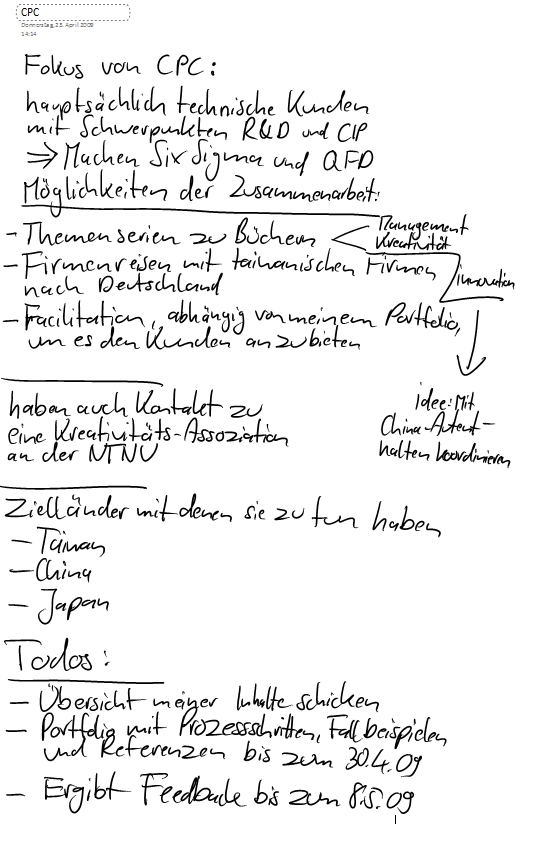 CPC
Donnerstag, 23. April 2009
14:14
Fokus von CPC:
hauptsächlich technische Kunden
mit Schwerpunkten R&D und CIP
⇒ Machen Six Sigma und QFD
Möglichkeiten der Zusammenarbeit:
- Themenserien zu Büchern < Management
Kreativität
- Firmenreisen mit taiwanischen Firmen
nach Deutschland
Innovation
- Facilitation, abhängig von meinem Portfolio,
um es den Kunden anzubieten
idee: Mit
China-Autent-
halten koordinieren
haben auch Kontakt zu
eine Kreativitäts-Assoziation
an der NTNU
Zielländer mit denen sie zu tun haben
- Taiwan
- China
- Japan
Todos:
- Übersicht meiner Inhalte schicken
- Portfolio mit Prozessschritten, Fallbeispielen
und Referenzen bis zum 30.4.09
- Ergibt Feedback bis zum 8.5.09